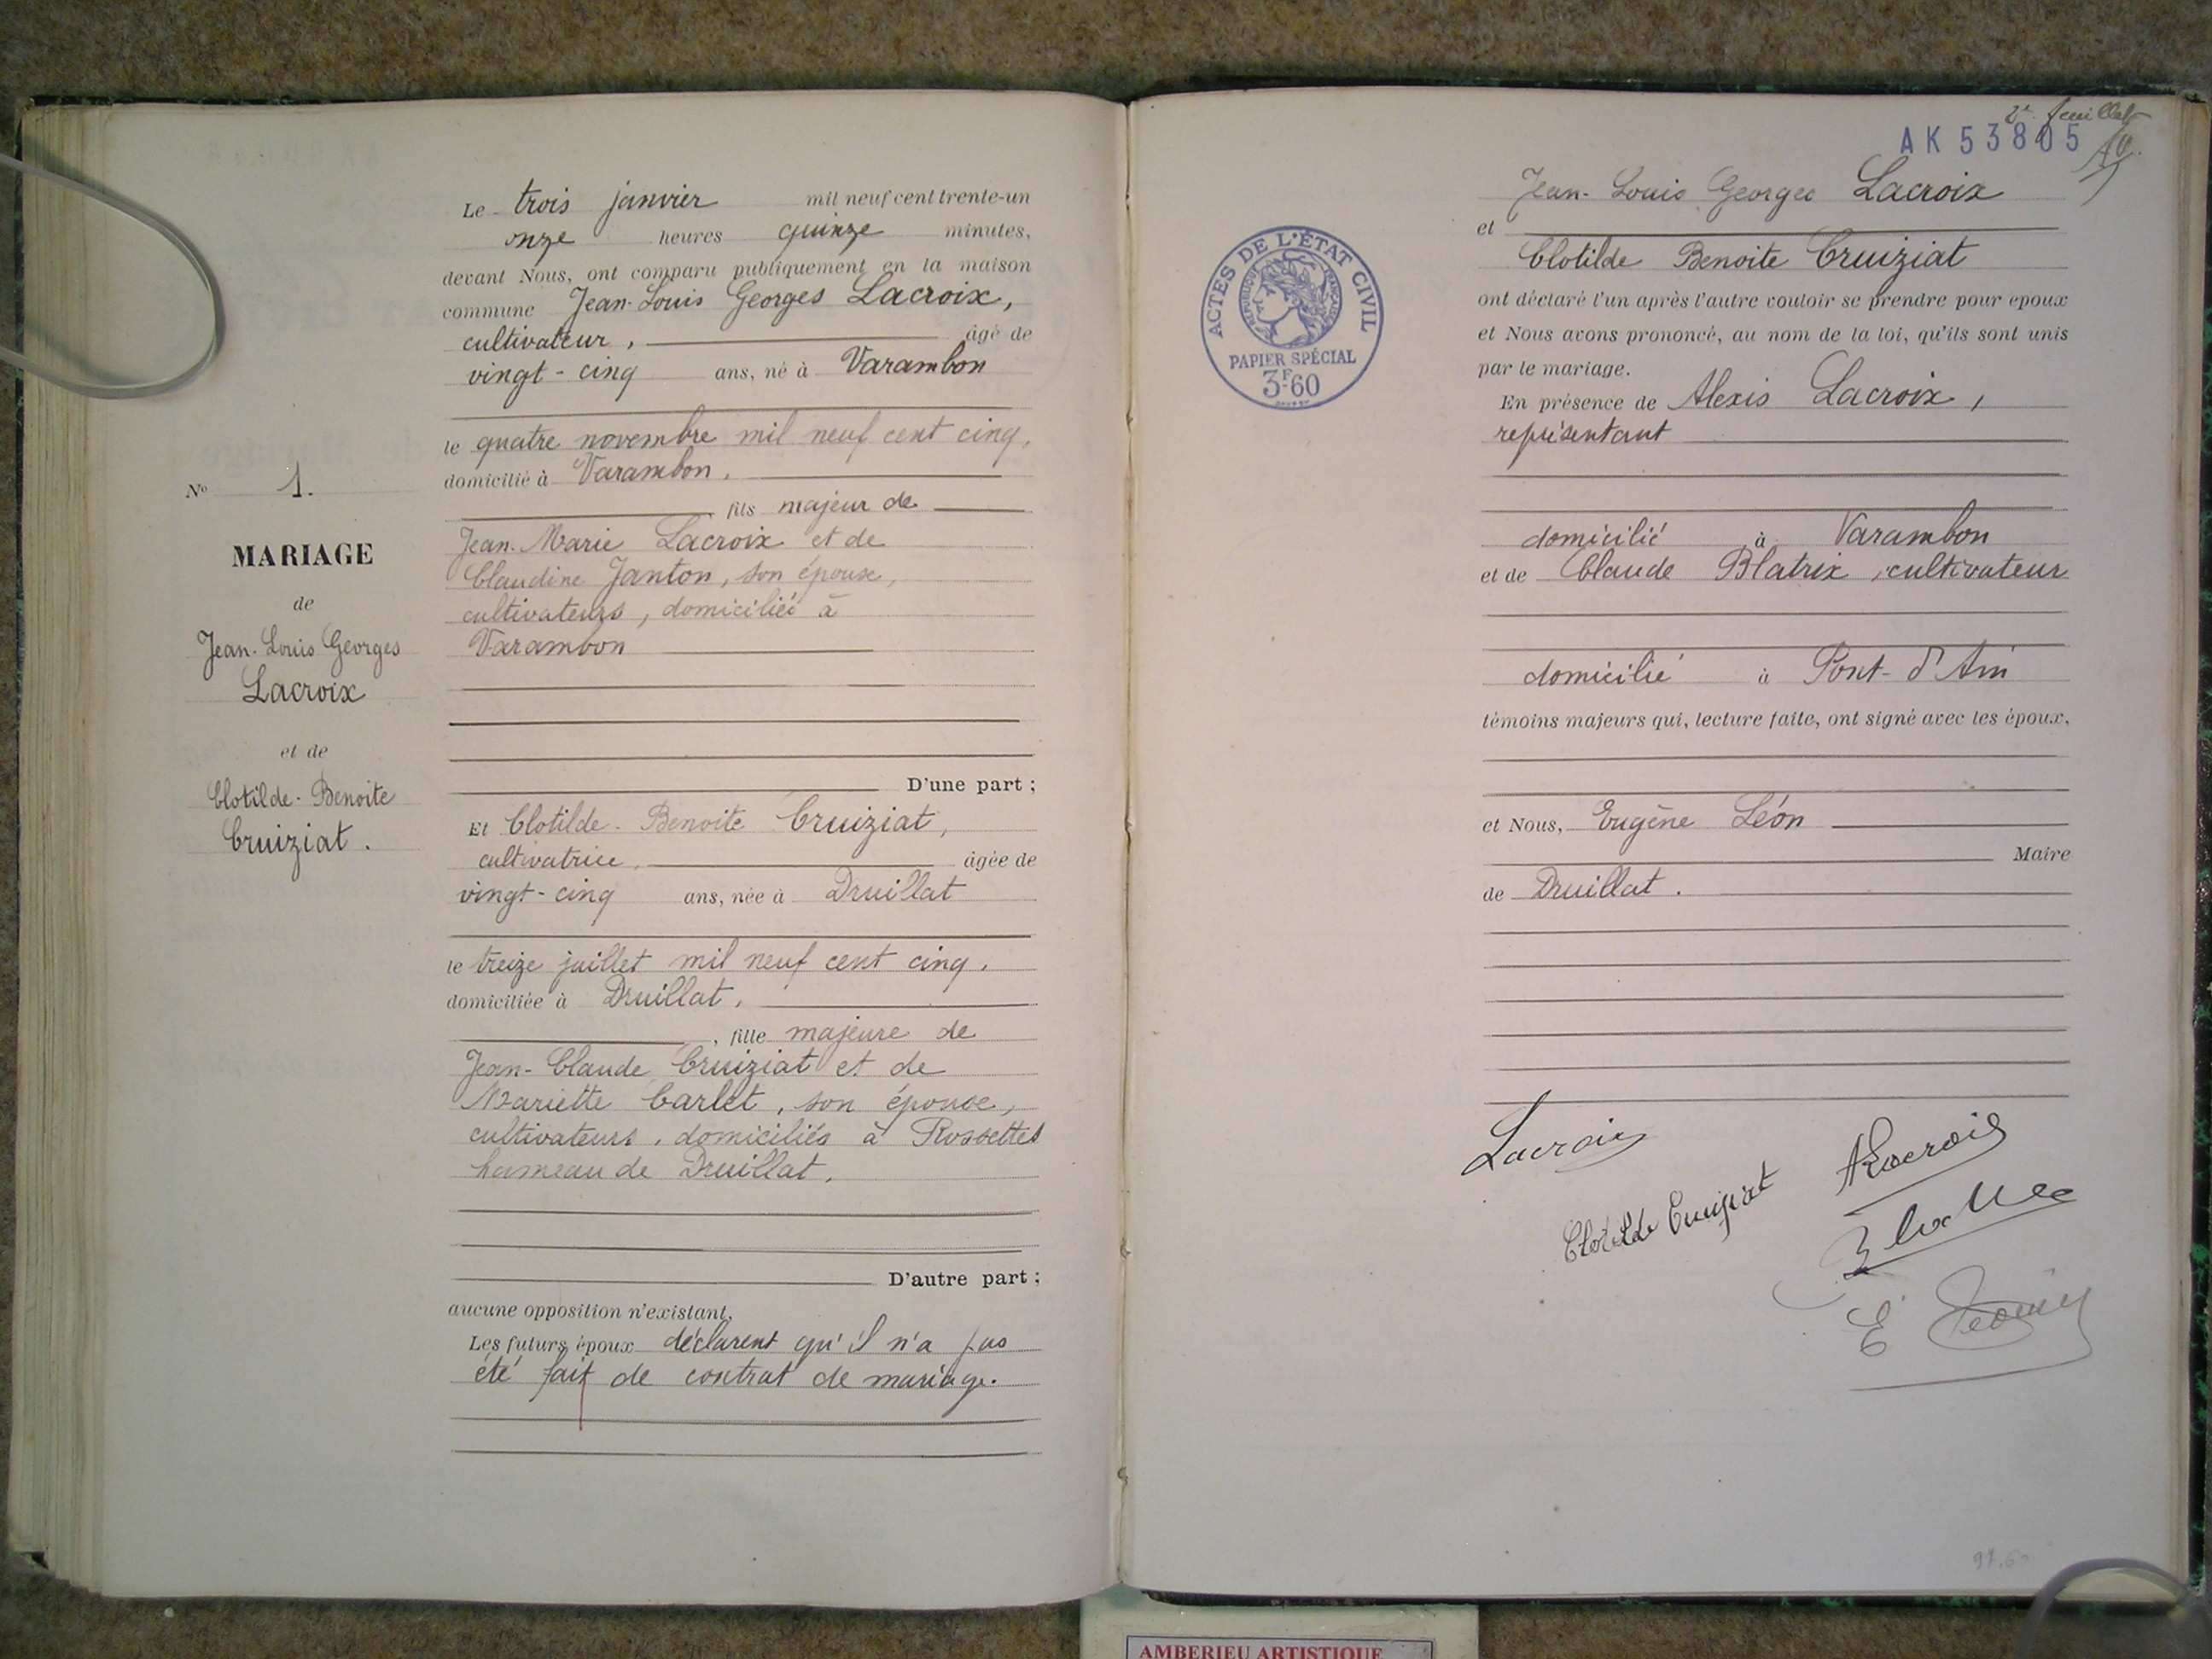 Le trois janvier mil neuf cent trente-un
onze heures quinze minutes,
devant Nous, ont comparu publiquement en la maison
commune Jean-Louis Georges Lacroix,
cultivateur, âgé de
vingt-cinq ans, né à Varambon
le quatre novembre mil neuf cent cinq,
domicilié à Varambon,
fils majeur de
Jean-Marie Lacroix et de
Claudine Janton, son épouse,
cultivateurs, domiciliés à
Varambon
D'une part ;
Et Clotilde-Benoite Cruiziat,
cultivatrice, âgée de
vingt-cinq ans, née à Druillat
le treize juillet mil neuf cent cinq,
domiciliée à Druillat,
, fille majeure de
Jean-Claude Cruiziat et de
Mariette Carlet, son épouse,
cultivateurs, domiciliés à Rossettes
hameau de Druillat,
D'autre part ;
aucune opposition n'existant,
Les futurs époux déclarent qu'il n'a pas
été fait de contrat de mariage.
No 1.
MARIAGE
de
Jean-Louis Georges
Lacroix
et de
Clotilde-Benoite
Cruiziat.
2e feuillet
AK 53805
ACTES DE L'ÉTAT CIVIL
RÉPUBLIQUE FRANÇAISE
PAPIER SPÉCIAL
3F60
Jean-Louis Georges Lacroix
et
Clotilde Benoite Cruiziat
ont déclaré l'un après l'autre vouloir se prendre pour époux
et Nous avons prononcé, au nom de la loi, qu'ils sont unis
par le mariage.
En présence de Alexis Lacroix,
représentant
domicilié à Varambon
et de Claude Blatrix, cultivateur
domicilié à Pont-d'Ain
témoins majeurs qui, lecture faite, ont signé avec les époux,
et Nous, Eugène Léon
Maire
de Druillat.
Lacroix
ALacroix
Clotilde Cruiziat
E
AMBERIEU ARTISTIQUE